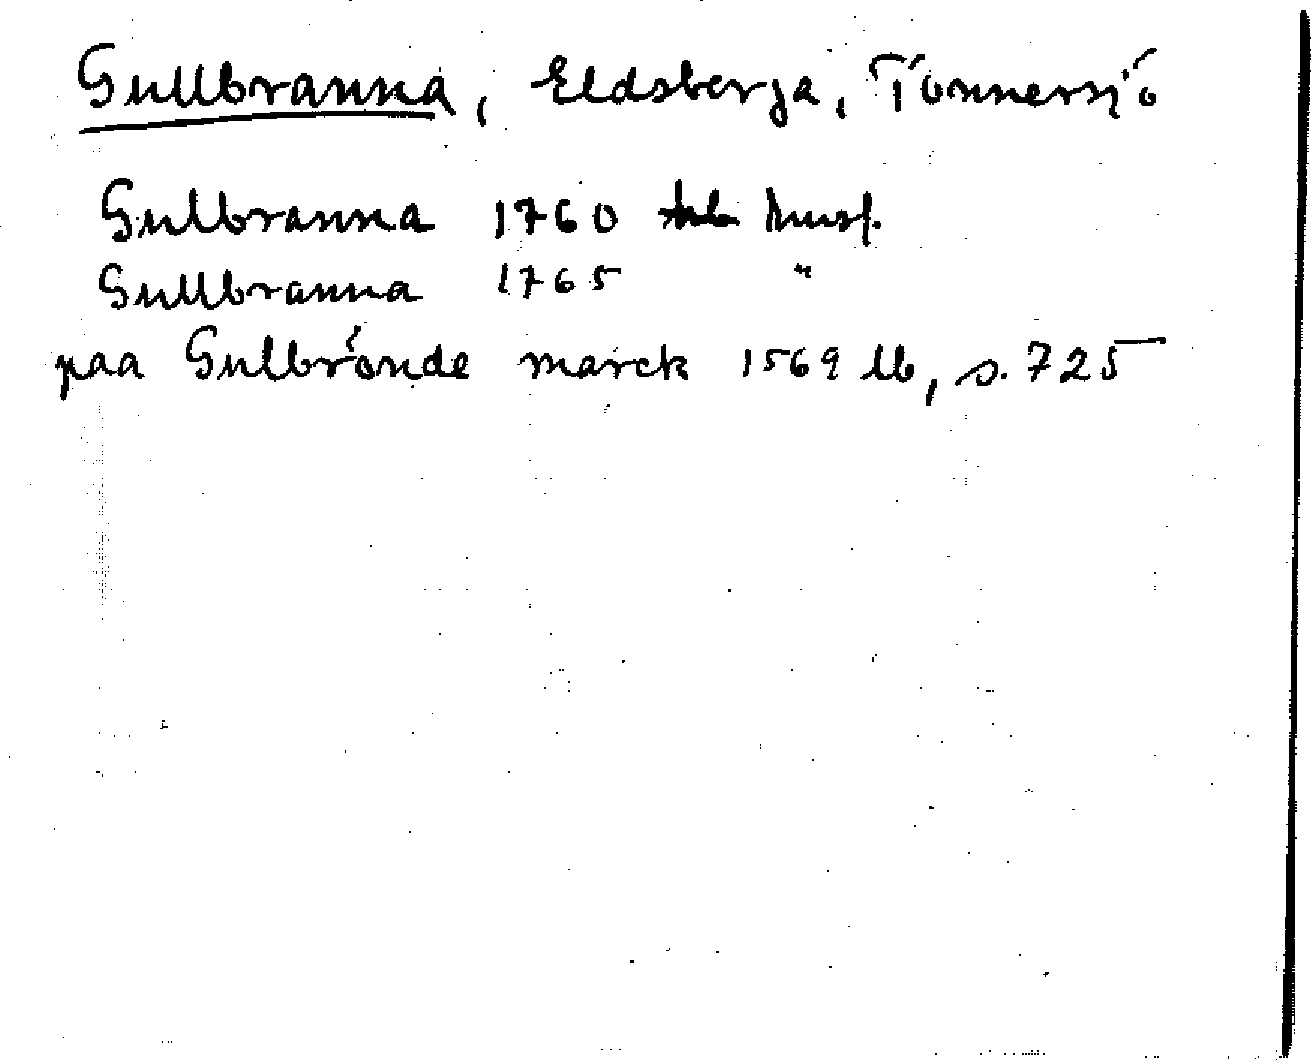 Gullbranna, Eldsberga, Tönnersjö
Gulbranna 1760 Musf.
Gullbranna 1765 "
paa Gulbrönde marck 1569 lb, s. 725